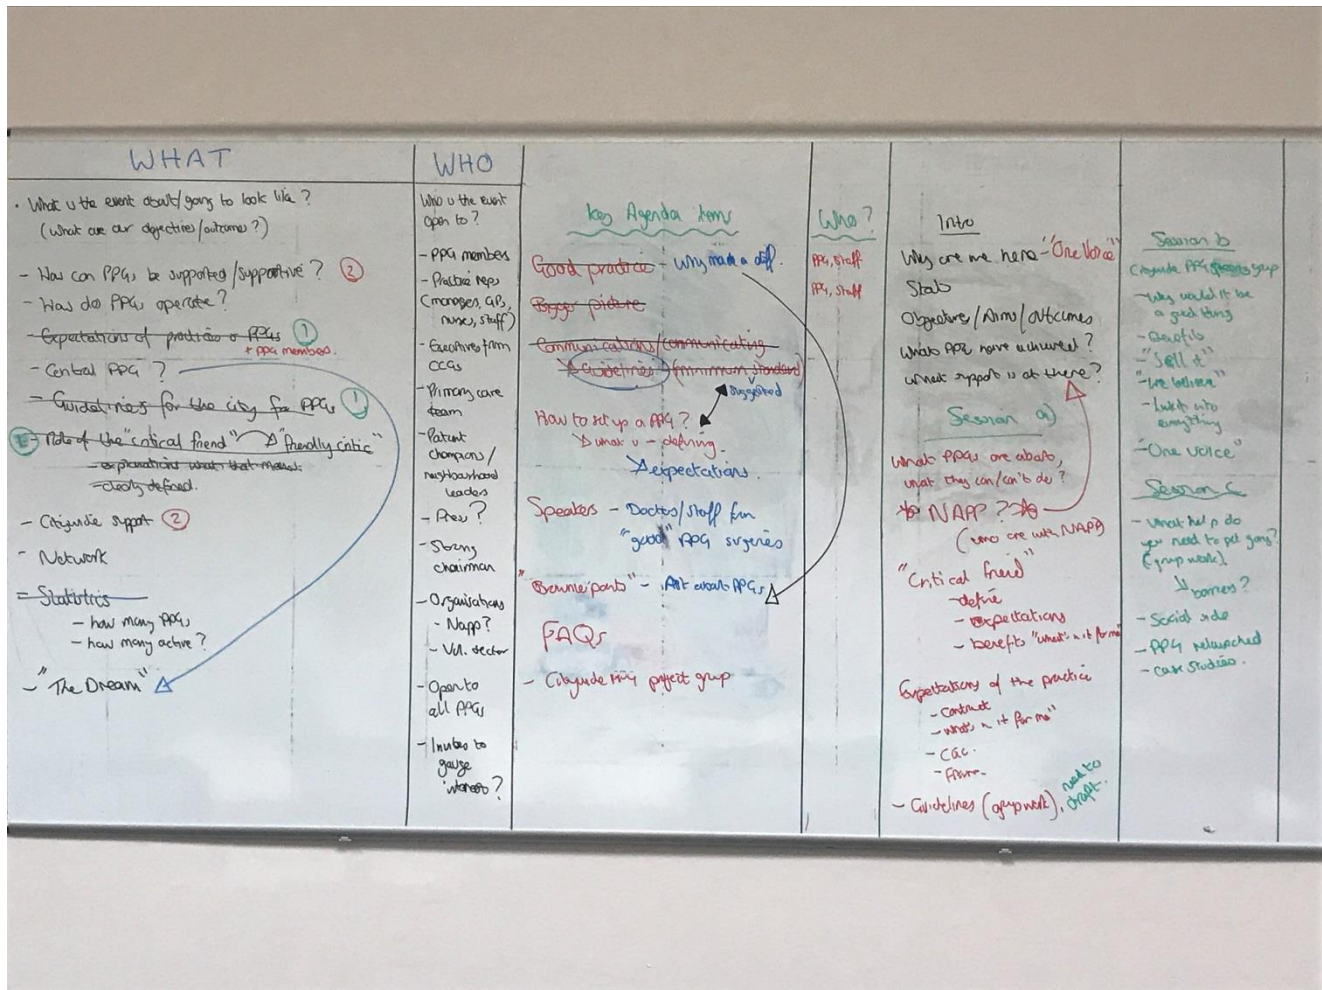 WHAT
• What is the event about/going to look like?
(What are our objectives/outcomes?)
- How can PPGs be supported/supportive? ②
- How do PPGs operate?
- Expectations of practices o PPGs ①
+ PPG members.
- Central PPG?
- Guidelines for the city for PPGs ①
- Role of the "critical friend" "friendly critic"
- explanations what that means.
- clearly defined.
- Citywide support ②
- Network
- Statistics
- how many PPGs
- how many active?
- "The Dream"
WHO
Who is the event
open to?
- PPG members
- Practice reps
(managers, GPs,
nurse, staff)
- Executives from
CCGs
- Primary care
team
- Patient
champions/
neighbourhood
leaders
- Press?
- Strong
chairman
- Organisations
- Napp?
- Vol. sector
- Open to
all PPGs
- Invites to
gauge
interest?
Key Agenda items
Good practice - Why made a diff.
Bigger picture
Communications/communicating
Guidelines (minimum standard)
suggested
How to set up a PPG?
what is - defining.
expectations.
Speakers - Doctors/Staff from
"good" PPG surgeries
"Brownie points" - about PPGs
FAQs
- Citywide PPG project group
Who?
PPG, Staff
PPG, Staff
Intro
Why are we here - "One Voice"
Stats
Objectives/Aims/Outcomes
What's PPG have achieved?
What support is out there?
Session a)
What PPGs are about,
what they can/can't do?
NAPP?
(who are with NAPP)
"Critical friend"
- define
- expectations
- benefits "what's in it for me"
Expectations of the practice
- Contract
- "what's in it for me"
- CQC.
- Guidelines (group work),
need to
draft.
Session b
Citywide PPG group
- Why would it be
a good thing
- Benefits
- "Sell it"
- "We believe"
- Link into
everything
- "One Voice"
Session c
- What help do
you need to get going?
(group work)
barriers?
- Social side
- PPG relaunched
- Case Studies.